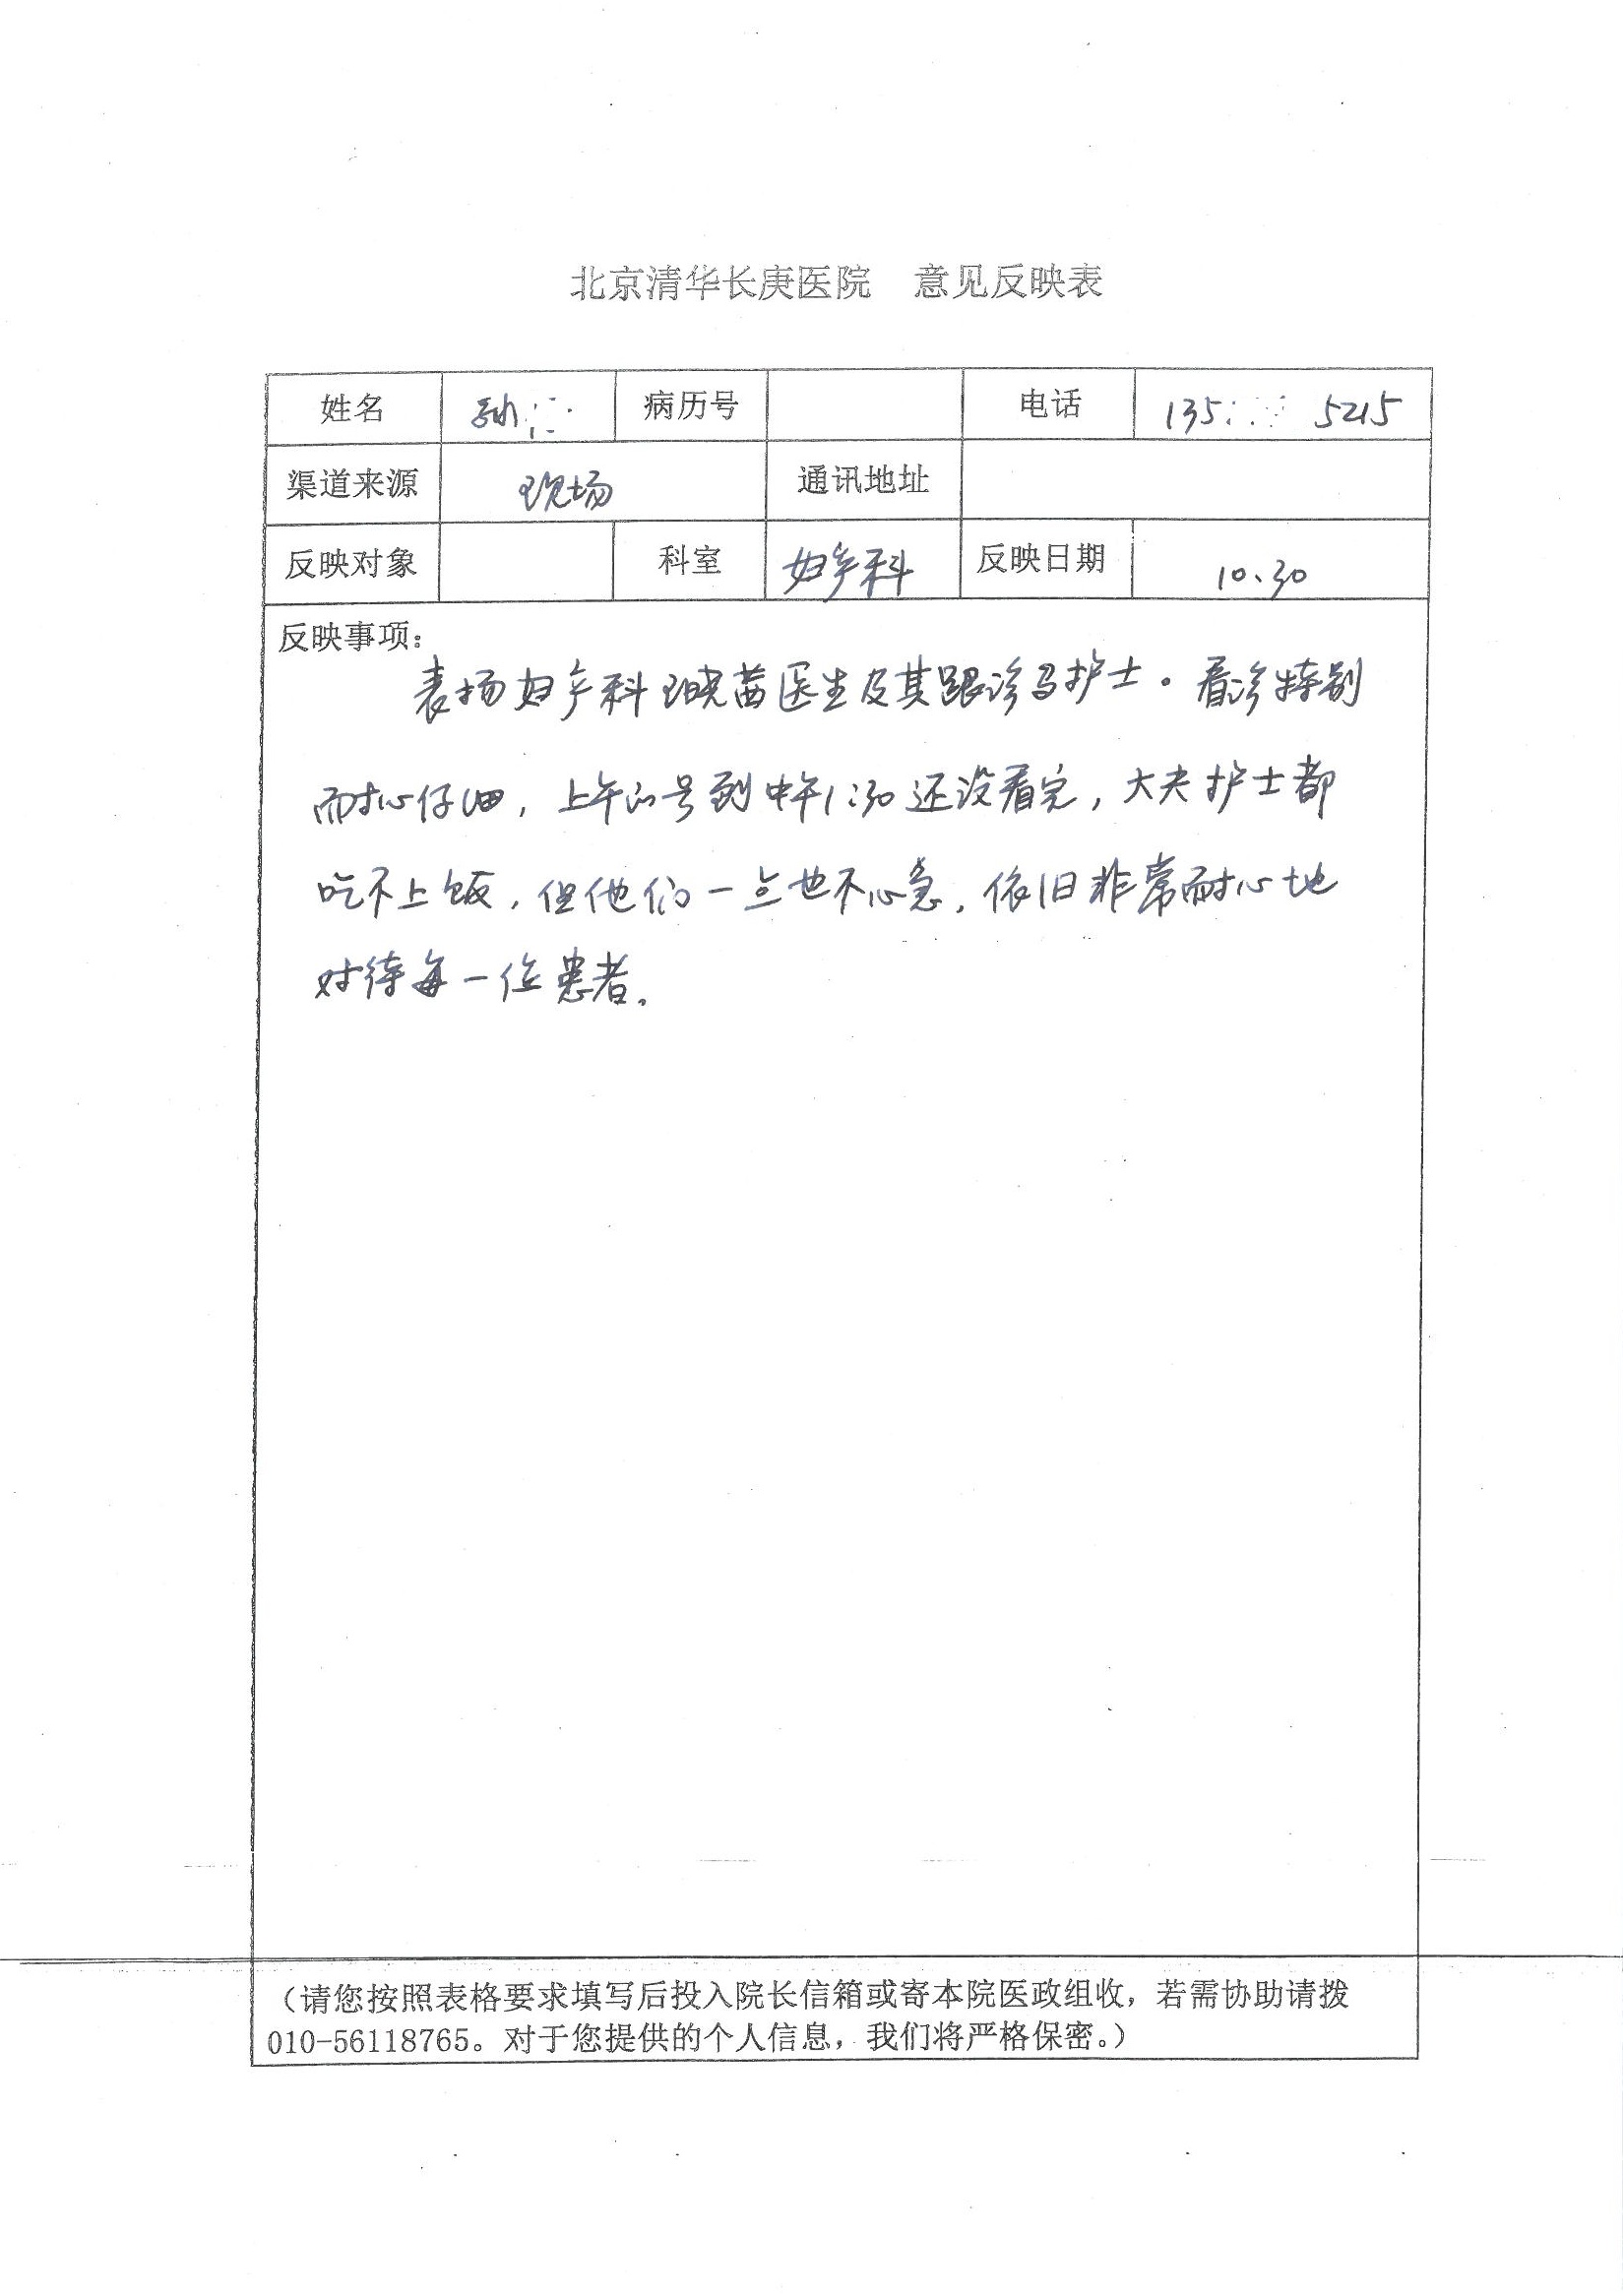 北京清华长庚医院 意见反映表
姓名 孙 病历号 电话 135 5215
渠道来源 现场 通讯地址
反映对象 科室 妇产科 反映日期 10、30
反映事项：
表扬妇产科 晓茜医生及其跟诊马护士。看诊特别
耐心仔细，上午的号到中午1:30还没看完，大夫护士都
吃不上饭，但他们一点也不心急，依旧非常耐心地
对待每一位患者.
（请您按照表格要求填写后投入院长信箱或寄本院医政组收，若需协助请拨
010-56118765。对于您提供的个人信息，我们将严格保密。）